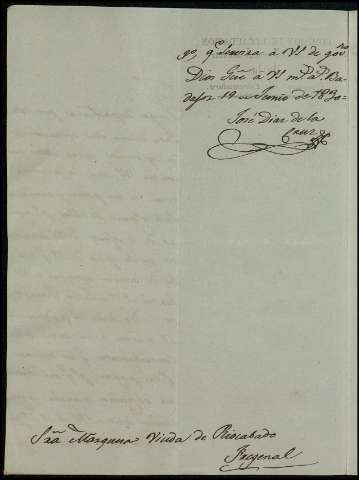 go, qe servira à VS de govno
Dios Gue à VS ms as Ba-
dajoz 19 de Junio de 1830=
José Diaz de la
Cruz
Sra Marquesa Viuda de Riocabado
Fregenal